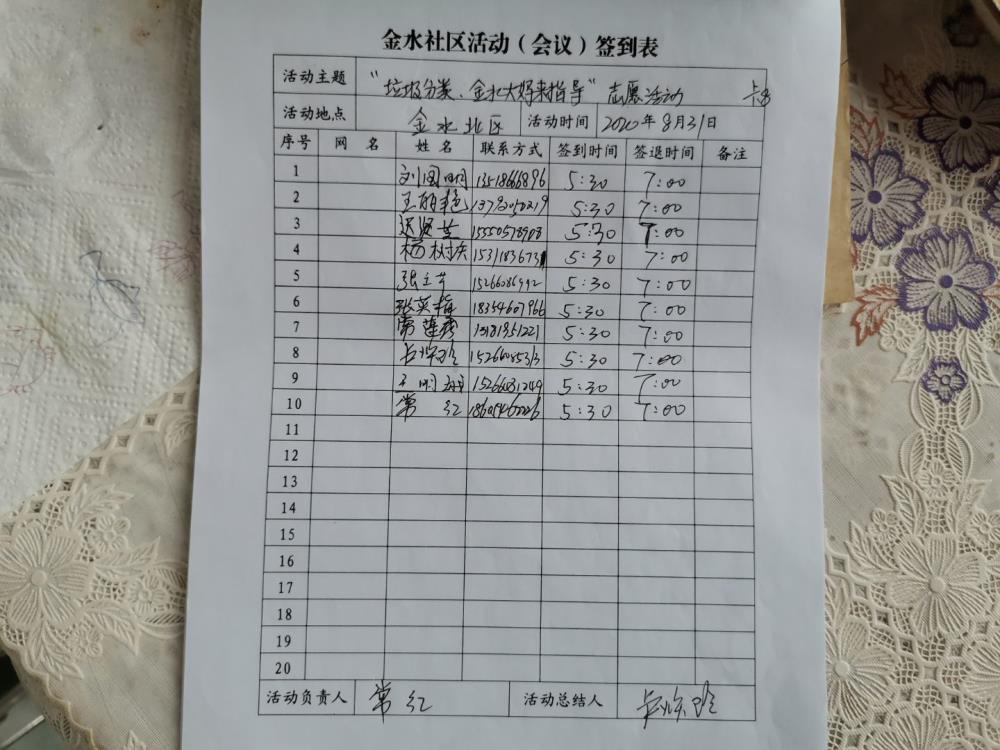 金水社区活动（会议）签到表
活动主题 "垃圾分类、金水大妈来指导"志愿活动
活动地点 金水北区 活动时间 2020年8月31日
序号 网名 姓名 联系方式 签到时间 签退时间 备注
1 刘国明 13518666896 5:30 7:00
2 王丽艳 5:30 7:00
3 迟贤芝 15550578908 5:30 7:00
4 杨树庆 15311836731 5:30 7:00
5 张立芹 15266086992 5:30 7:00
6 张英梅 18354607966 5:30 7:00
7 常莲秀 5:30 7:00
8 5:30 7:00
9 15266081249 5:30 7:00
10 常红 5:30 7:00
11
12
13
14
15
16
17
18
19
20
活动负责人 常红 活动总结人